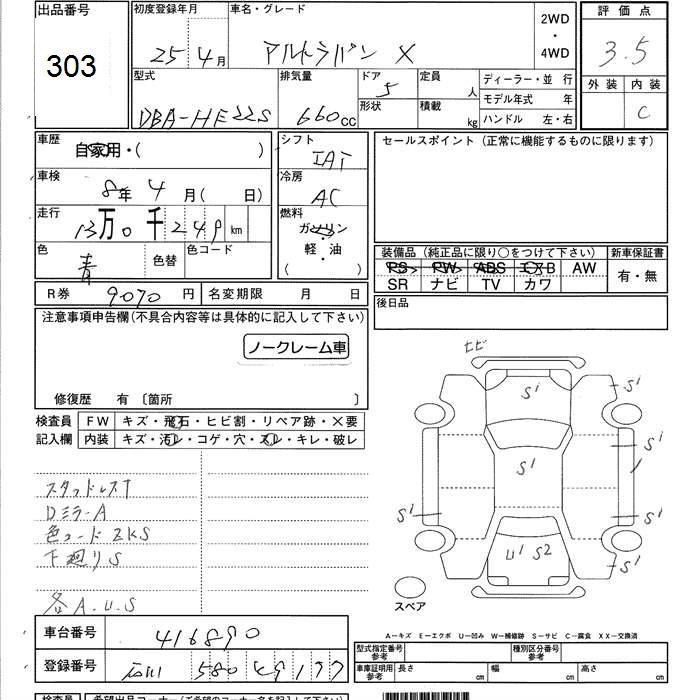 出品番号 初度登録年月 車名・グレード 評価点
303 25年4月 アルトラパン X 2WD・4WD 3.5
型式 排気量 ドア 定員 ディーラー・並 行 外装 内装
DBA-HE22S 660cc 5 人 モデル年式 年 C
形状 積載 kg ハンドル 左・右
車歴 シフト セールスポイント (正常に機能するものに限ります)
自家用・( ) IAT
車検 冷房
8年 4月 ( 日) AC
走行 燃料
13万0千249km ガソリン・軽・油
色 色コード 装備品 (純正品に限り○をつけて下さい) 新車保証書
青 色替 ( ) PS PW ABS エアB AW 有・無
SR ナビ TV カワ
R券 9070円 名変期限 月 日 後日品
注意事項申告欄(不具合内容等は具体的に記入して下さい)
ノークレーム車
修復歴 有 〔箇所 〕
検査員 FW キズ・飛石・ヒビ割・リペア跡・×要
記入欄 内装 キズ・汚レ・コゲ・穴・スレ・キレ・破レ
ヒビ
S1
S1
S1
S1
S1
S1
U1 S2
S1
スタッドレスT
DミラーA
色コードZKS
下廻りS
各A.U.S
スペア
Aーキズ Eーエクボ Uー凹み Wー補修跡 Sーサビ Cー腐食 XXー交換済
車台番号 416890
型式指定番号 参考 種別区分番号 参考
登録番号 石川 580 49177
車庫証明用 参考 長さ cm 幅 cm 高さ cm